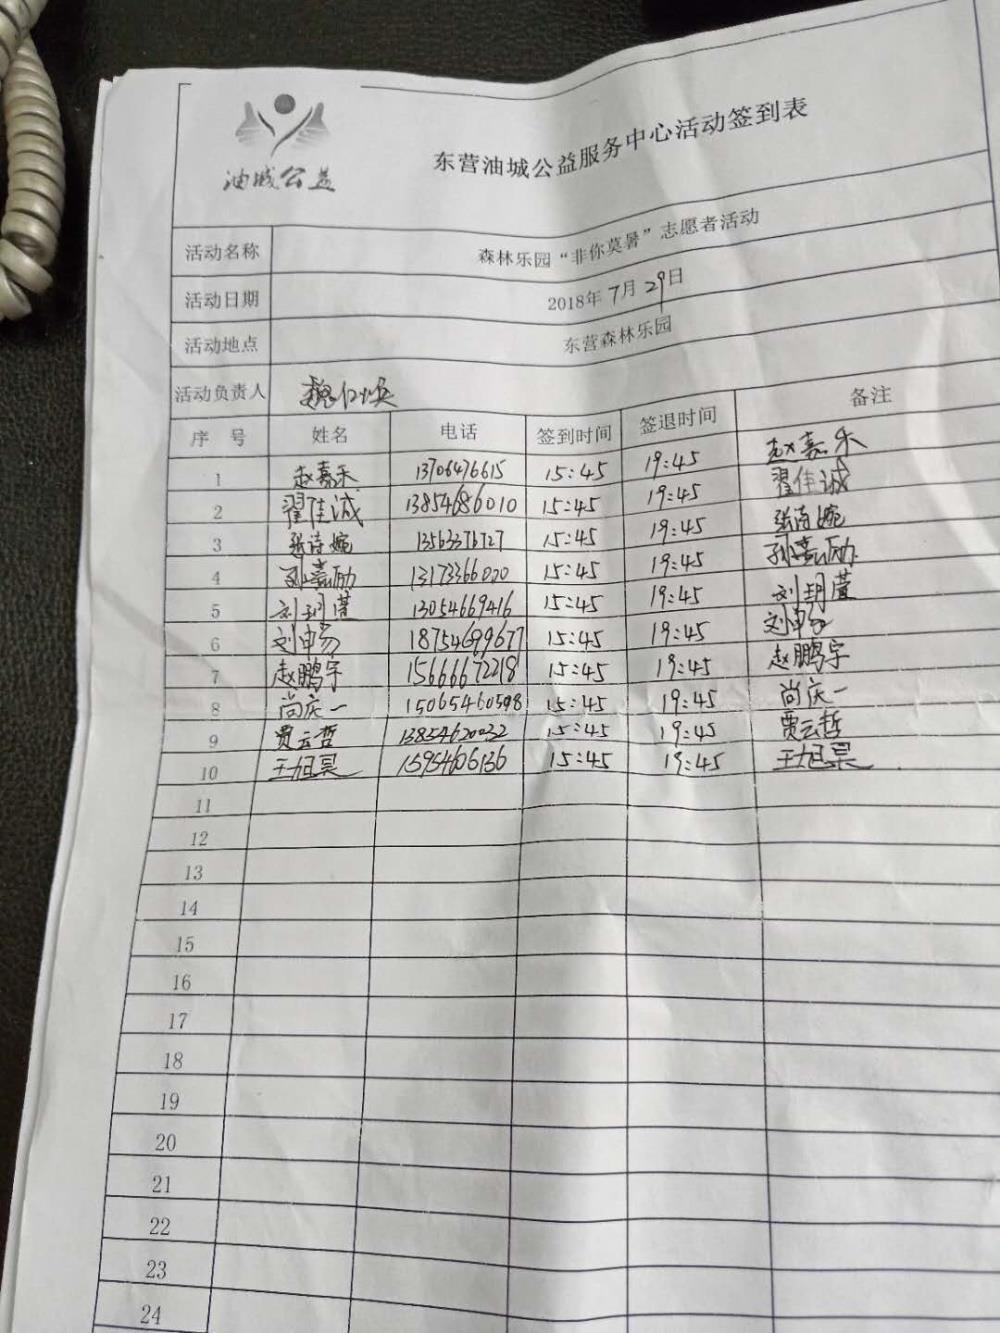 油城公益
东营油城公益服务中心活动签到表
活动名称 森林乐园“非你莫暑”志愿者活动
活动日期 2018年7月29日
活动地点 东营森林乐园
活动负责人 魏仁焕
序号 姓名 电话 签到时间 签退时间 备注
1 赵嘉禾 13706476615 15:45 19:45 赵嘉禾
2 翟佳诚 13854686010 15:45 19:45 翟佳诚
3 张诗婉 15:45 19:45 张诗婉
4 孙嘉励 13173366020 15:45 19:45 孙嘉励
5 刘玥萱 13054669416 15:45 19:45 刘玥萱
6 刘申易 18754699677 15:45 19:45
7 赵鹏宇 15666672218 15:45 19:45 赵鹏宇
8 尚庆一 15065460598 15:45 19:45 尚庆一
9 贾云哲 13854620032 15:45 19:45 贾云哲
10 王旭昊 15954606136 15:45 19:45 王旭昊
11
12
13
14
15
16
17
18
19
20
21
22
23
24